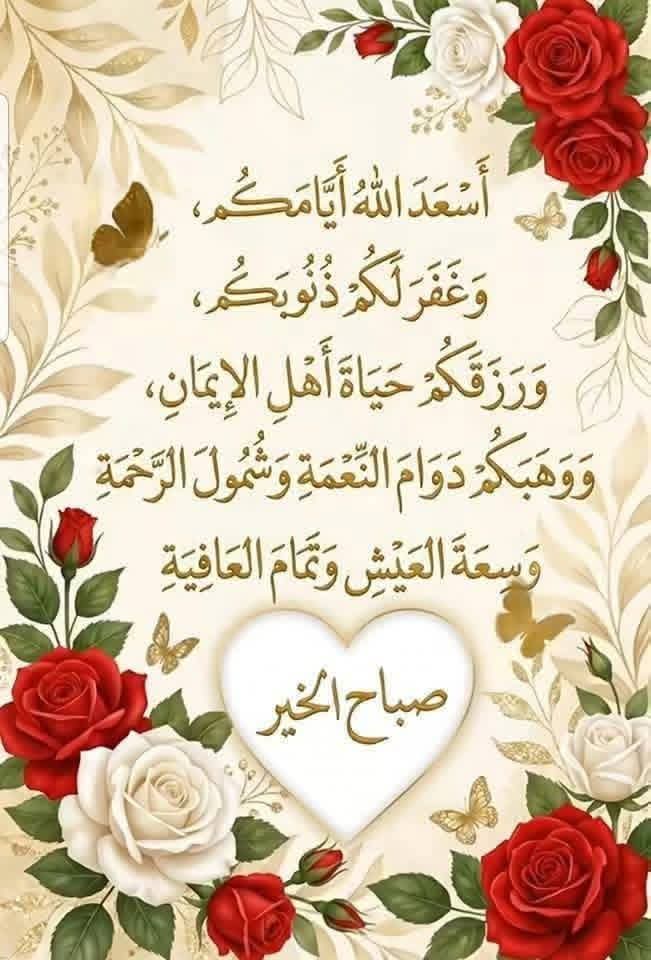 أَسْعَدَ اللهُ أَيَّامَكُم،
وَغَفَرَ لَكُمْ ذُنُوبَكُم،
وَرَزَقَكُمْ حَيَاةَ أَهْلِ الإِيمَانِ،
وَوَهَبَكُمْ دَوَامَ النِّعْمَةِ وَشُمُولَ الرَّحْمَةِ
وَسِعَةَ العَيْشِ وَتَمَامَ العَافِيَةِ
صباح الخير